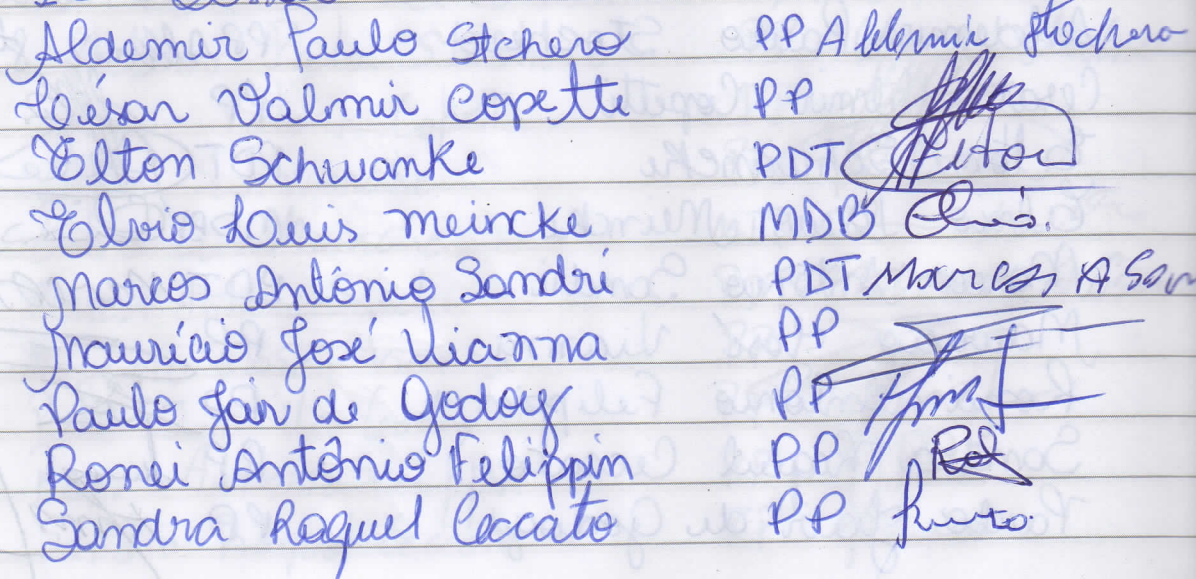 Aldemir Paulo Stchero PP Aldemir Stochero
César Valmir Copetti PP
Elton Schwanke PDT Elton
Elvio Luis Meincke MDB
Marcos Antônio Sandri PDT Marcos A San
Maurício José Vianna PP
Paulo Jair de Godoy PP
Ronei Antônio Felippin PP
Sandra Raquel Ceccato PP